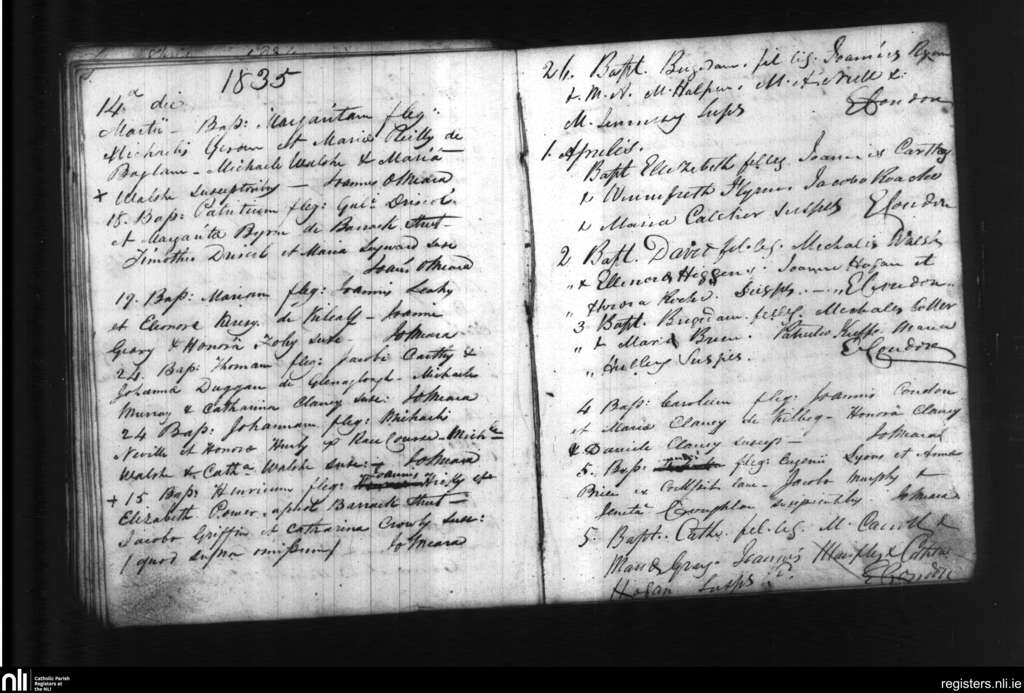 1835
14a die
Martii - Bap: Margaritam fleg:
Michaelis et Maria Reilly de
Baglane - Michaele Walshe & Maria
+ Walshe susceptoribus - Joannes OMeara
18. Bap: Patricium fleg: Gul: Driscol
et Margarita Byrne de Barrack Street -
Timotheo Driscol et Maria susc
Joans OMeara
19. Bap: Mariam fleg: Joannis Leahy
et Eleonora de - Joanne
Geary & Honora Foley susc: JoMeara
24. Bap: Thomam fleg: Jacobi Carthy &
Johanna Duggan de - Michaele
Murray & Catharina Clancy susc: JoMeara
24 Bap: Johannam fleg: Michaelis
Neville et Honora ex Race Course - Michle
Walshe & Catha Walshe susc: JoMeara
+ 15 Bap: Henricum fleg: Joannis Reilly et
Elizabeth Power aphod Barrack Street
Jacobo Griffin et Catharina Crowly susc:
/quod supra omissum/ JoMeara
26. Bapt. Brigdam. fil leg. Joannis Ryan
& M. A. M. Halpin. M. & Neill &
M. Susps ECondon
1. Aprilis.
Bapt Elizebeth fil leg Joannis Carthy
& Winnefreth Flynn. Jacobo Roache
& Maria Susps ECondon
2 Bapt. David fil. leg. Michalis Walsh
" & Ellenora Higgens. Joanne Hogan et
" Honora Roche. Susps. - " ECondon "
3. Bapt. Brigdam. fil leg. Michales
" & Maria Brien. Patricio Keeffe Maria
" Susps. ECondon
4 Bap: Carolum fleg: Joannis Condon
et Maria Clancy de Kilbeg - Honora Clancy
& Daniele Clancy suscep - JoMeara
5. Bap: fleg: Eugenii Lyons et Anna
Brien ex Cockpit Lane - Jacobo Murphy &
Coughlan suscipientibs JoMeara
5. Bapt. Cath. fil. leg. M. Carroll &
Mary Gray. Joannis & Cath
Hogan Susps ECondon
nli
Catholic Parish
Registers at
the NLI
registers.nli.ie